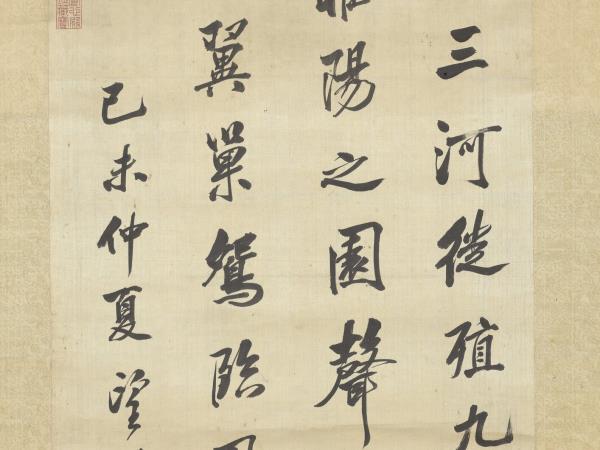 三河徙殖九
陽之園聲
翼巢鴛臨
己未仲夏望